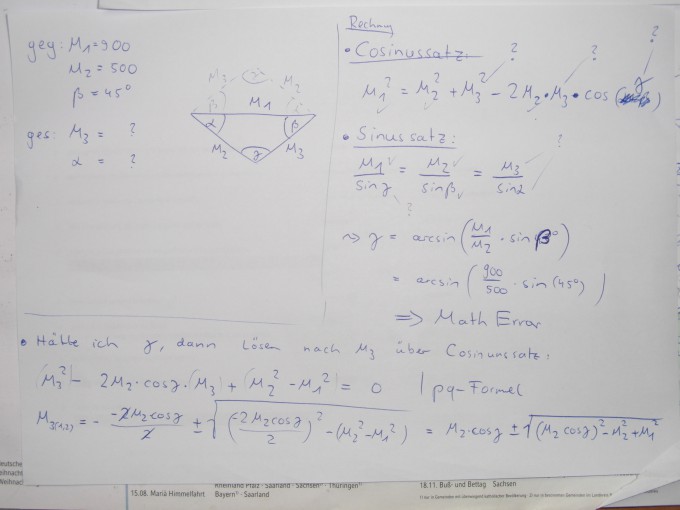 geg: M₁=900
M₂ = 500
β = 45°
ges: M₃ = ?
α = ?
M₃ M₂
β
M₁
α β
M₂ γ M₃
Rechnung
• Cosinussatz: ?
? ? ?
M₁² = M₂² + M₃² - 2M₂•M₃• cos (γ)
• Sinussatz: ?
M₁/sinγ = M₂/sinβ = M₃/sinα
?
~> γ = arcsin (M₁/M₂ · sin β°)
= arcsin (900/500 · sin (45°))
=> Math Error
• Hätte ich γ, dann Lösen nach M₃ über Cosinunssatz:
(M₃²) - 2M₂·cosγ·(M₃) + (M₂² - M₁²) = 0 | pq-Formel
M₃(1,2) = - -2M₂cosγ/2 ± √((-2M₂cosγ/2)² - (M₂²-M₁²)) = M₂·cosγ ± √((M₂cosγ)² - M₂² + M₁²)
15.08. Mariä Himmelfahrt
Rheinland Pfalz · Saarland · Sachsen · Thüringen
Bayern · Saarland
18.11. Buß- und Bettag Sachsen